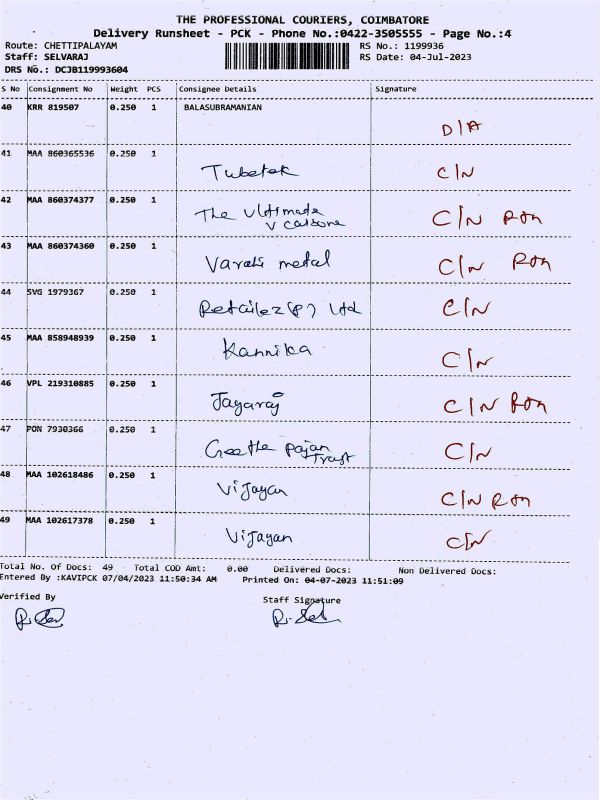 THE PROFESSIONAL COURIERS, COIMBATORE
Delivery Runsheet - PCK - Phone No.:0422-3505555 - Page No.:4
Route: CHETTIPALAYAM RS No.: 1199936
Staff: SELVARAJ RS Date: 04-Jul-2023
DRS No.: DCJB119993604
S No Consignment No Weight PCS Consignee Details Signature
40 KRR 819507 0.250 1 BALASUBRAMANIAN D/A
41 MAA 860365536 0.250 1 Tubetek C/N
42 MAA 860374377 0.250 1 The Ultimate C/N Ron
43 MAA 860374360 0.250 1 Varahi metal C/N Ron
44 SVG 1979367 0.250 1 Retailez (P) Ltd C/N
45 MAA 858948939 0.250 1 Kannika C/N
46 VPL 219310885 0.250 1 Jayaraj C/N Ron
47 PON 7930366 0.250 1 Trust C/N
48 MAA 102618486 0.250 1 Vijayan C/N Ron
49 MAA 102617378 0.250 1 Vijayan C/N
Total No. Of Docs: 49 Total COD Amt: 0.00 Delivered Docs: Non Delivered Docs:
Entered By :KAVIPCK 07/04/2023 11:50:34 AM Printed On: 04-07-2023 11:51:09
Verified By Staff Signature